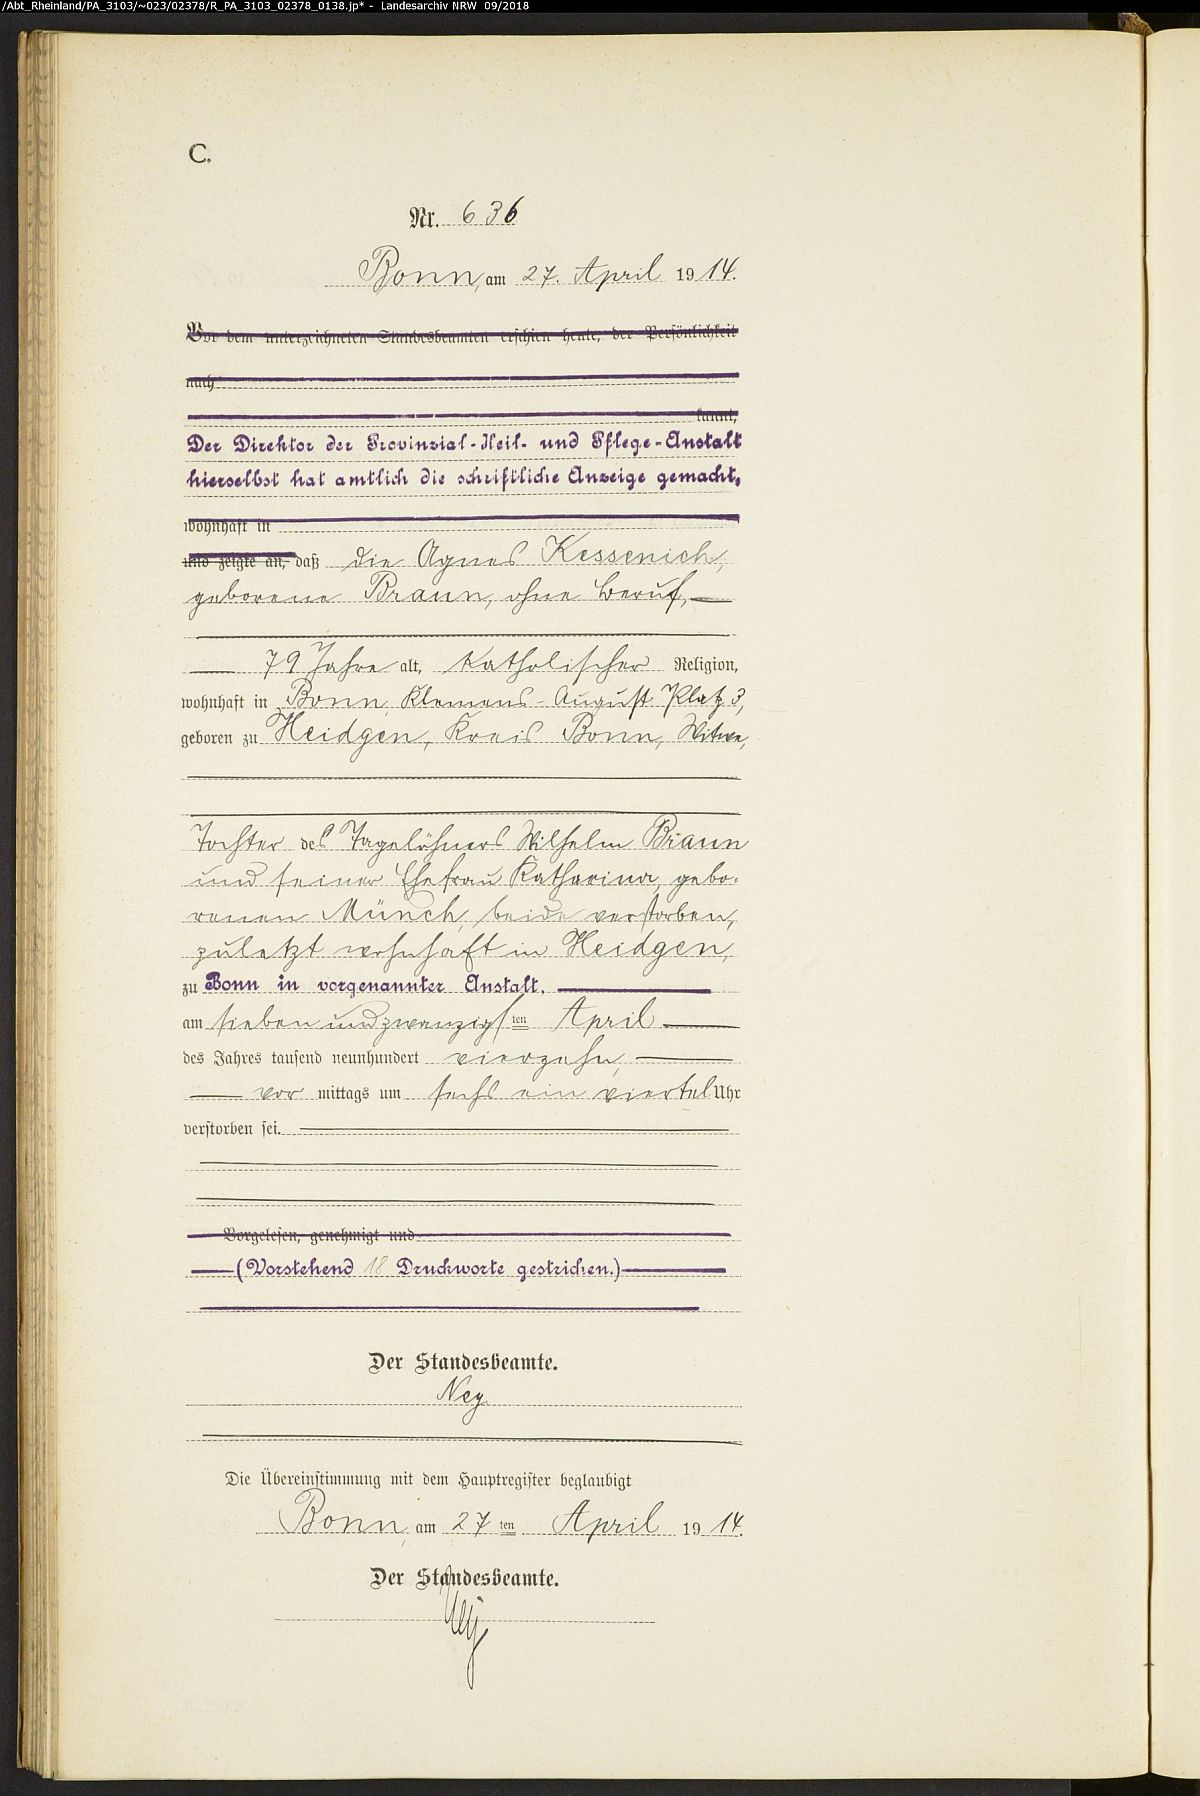 /Abt_Rheinland/PA_3103/~023/02378/R_PA_3103_02378_0138.jp* - Landesarchiv NRW 09/2018
C.
Nr. 636
Bonn, am 27. April 1914.
Vor dem unterzeichneten Standesbeamten erschien heute, der Persönlichkeit
nach
kannt,
Der Direktor der Provinzial-Heil- und Pflege-Anstalt
hierselbst hat amtlich die schriftliche Anzeige gemacht,
wohnhaft in
und zeigte an, daß die Agnes Kessenich,
geborene Braun, ohne Beruf,
79 Jahre alt, katholischer Religion,
wohnhaft in Bonn, Klemens-August Platz 3,
geboren zu Heidgen, Kreis Bonn, Witwe,
Tochter des Tagelöhners Wilhelm Braun
und seiner Ehefrau Katharina, gebo-
renen Münch, beide verstorben,
zuletzt wohnhaft in Heidgen,
zu Bonn in vorgenannter Anstalt,
am siebenundzwanzigsten April
des Jahres tausend neunhundert vierzehn,
vor mittags um sechs ein viertel Uhr
verstorben sei.
Vorgelesen, genehmigt und
(Vorstehend 18 Druckworte gestrichen.)
Der Standesbeamte.
Ney
Die Übereinstimmung mit dem Hauptregister beglaubigt
Bonn, am 27 ten April 1914.
Der Standesbeamte.
Ney